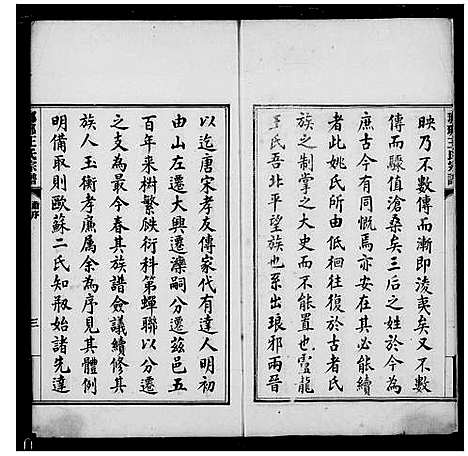 映乃不數傳而漸即淩夷矣又不數
傳而驟值滄桑矣三后之姓於今為
庶古今有同慨焉亦安在其必能續
者此姚氏所由低徊往復於古者氏
族之制掌之大史而不能置也盧龍
王氏吾北平望族也系出琅邪兩晉
以迄唐宋孝友傳家代有達人明初
由山左遷大興遷灤嗣分遷茲邑五
百年来樹繁陔衍科第蟬聯以分遷
之支為最今春其族譜僉議續修其
族人玉衡孝廉属余為序見其體例
明備取則歐蘇二氏知剏始諸先達
琅琊王氏宗譜
譜序
三